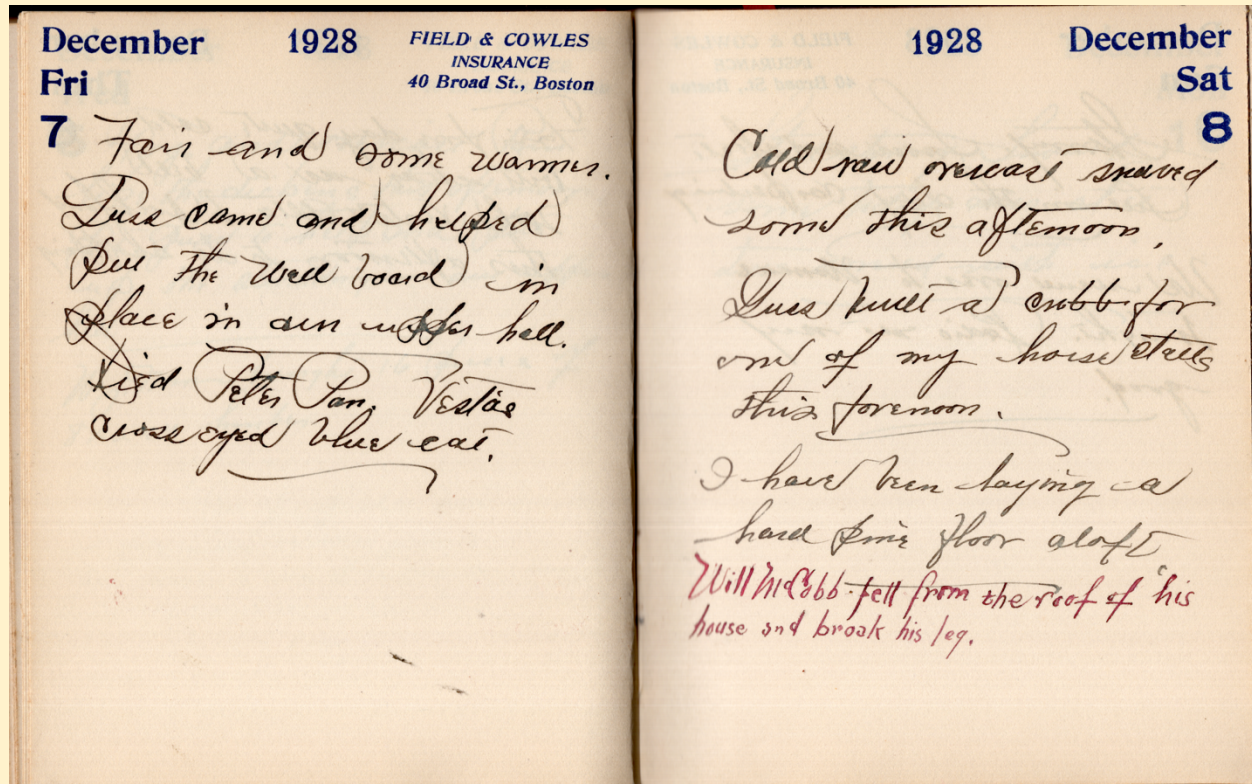 December 1928 FIELD & COWLES
INSURANCE
Fri 40 Broad St., Boston
7 Fair and some warmer.
Guss came and helped
put the Wall board in
place in our upper hall.
Died Peter Pan. Vestas
cross eyed blue cat.
1928 December
Sat
8
Cold raw overcast snowed
some this afternoon.
Guss built a cribb for
one of my horse stalls
this forenoon.
I have been laying a
hard pine floor aloft
Will McCobb fell from the roof of his
house and broak his leg.